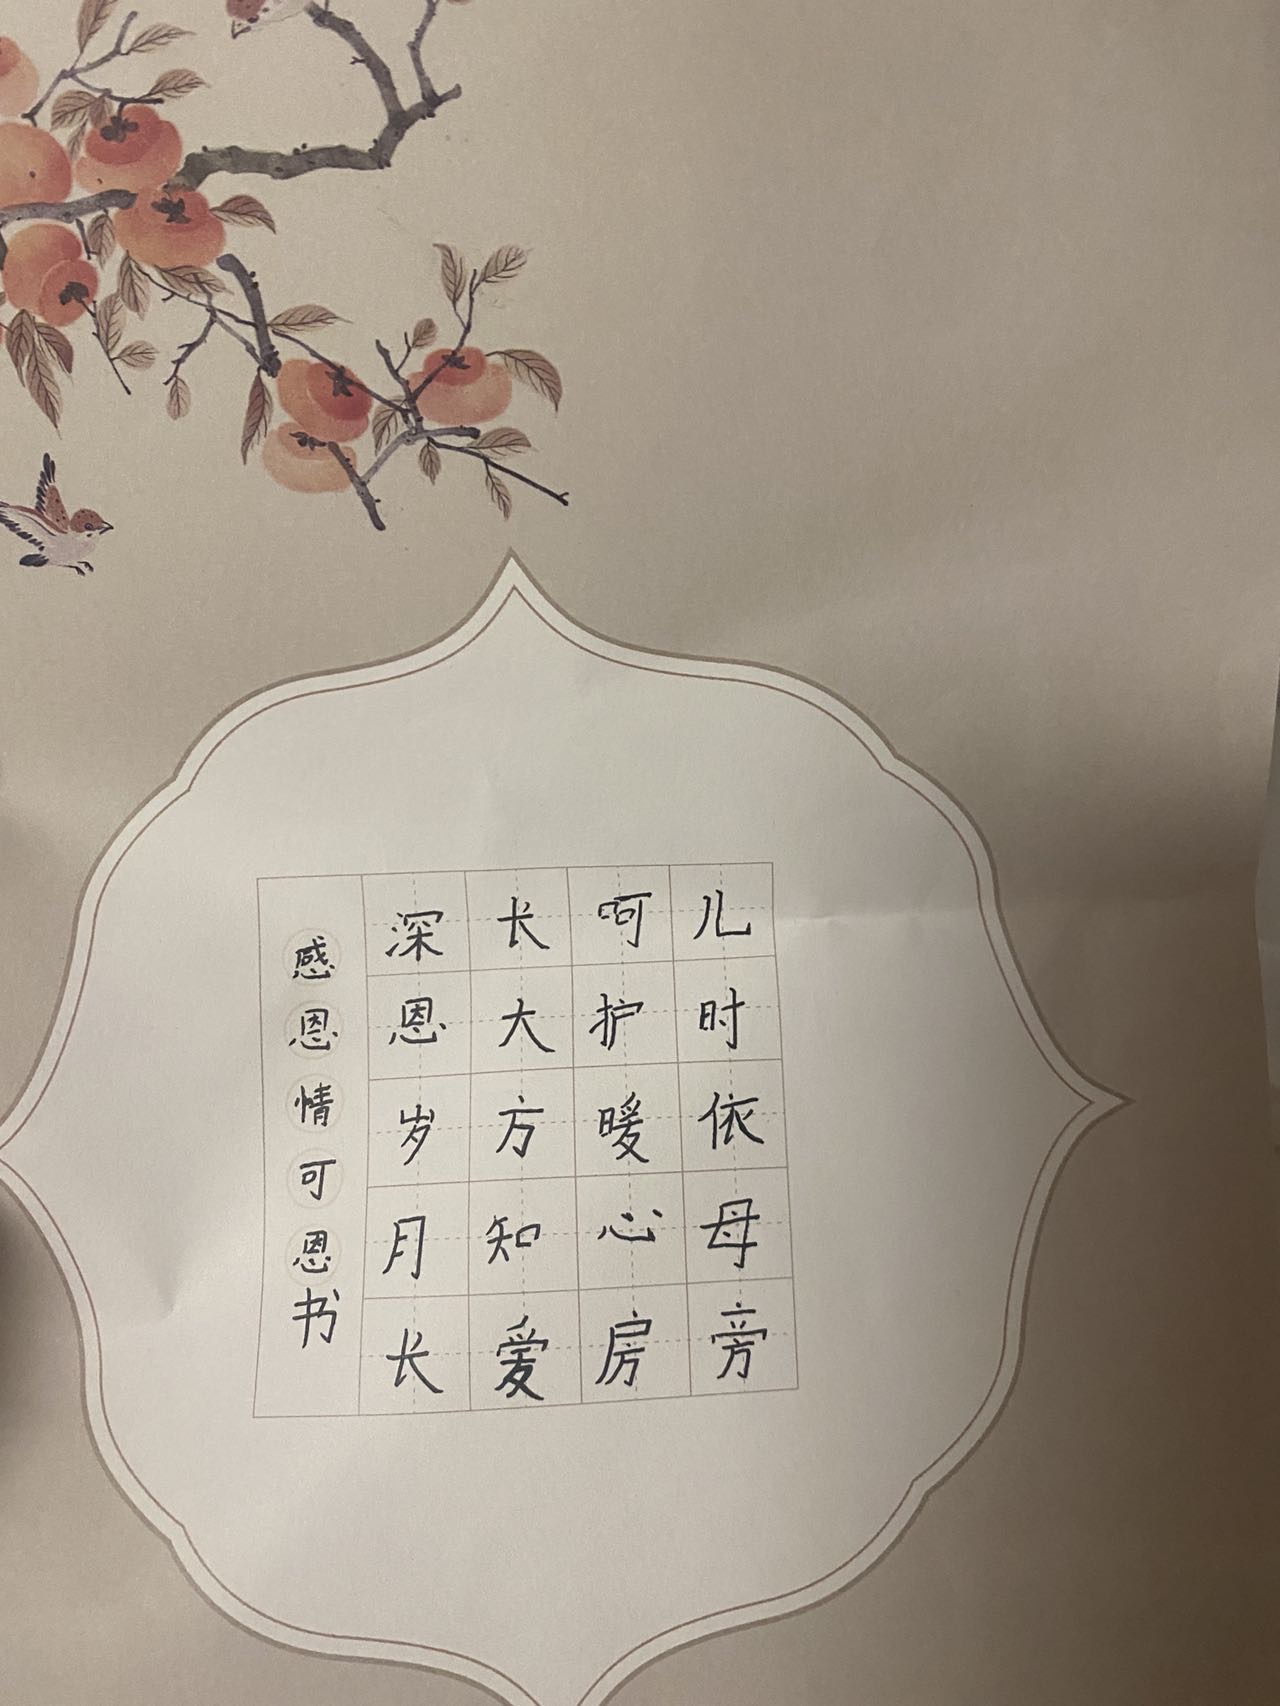 儿时依母旁
呵护暖心房
长大方知爱
深恩岁月长
感恩情可恩书